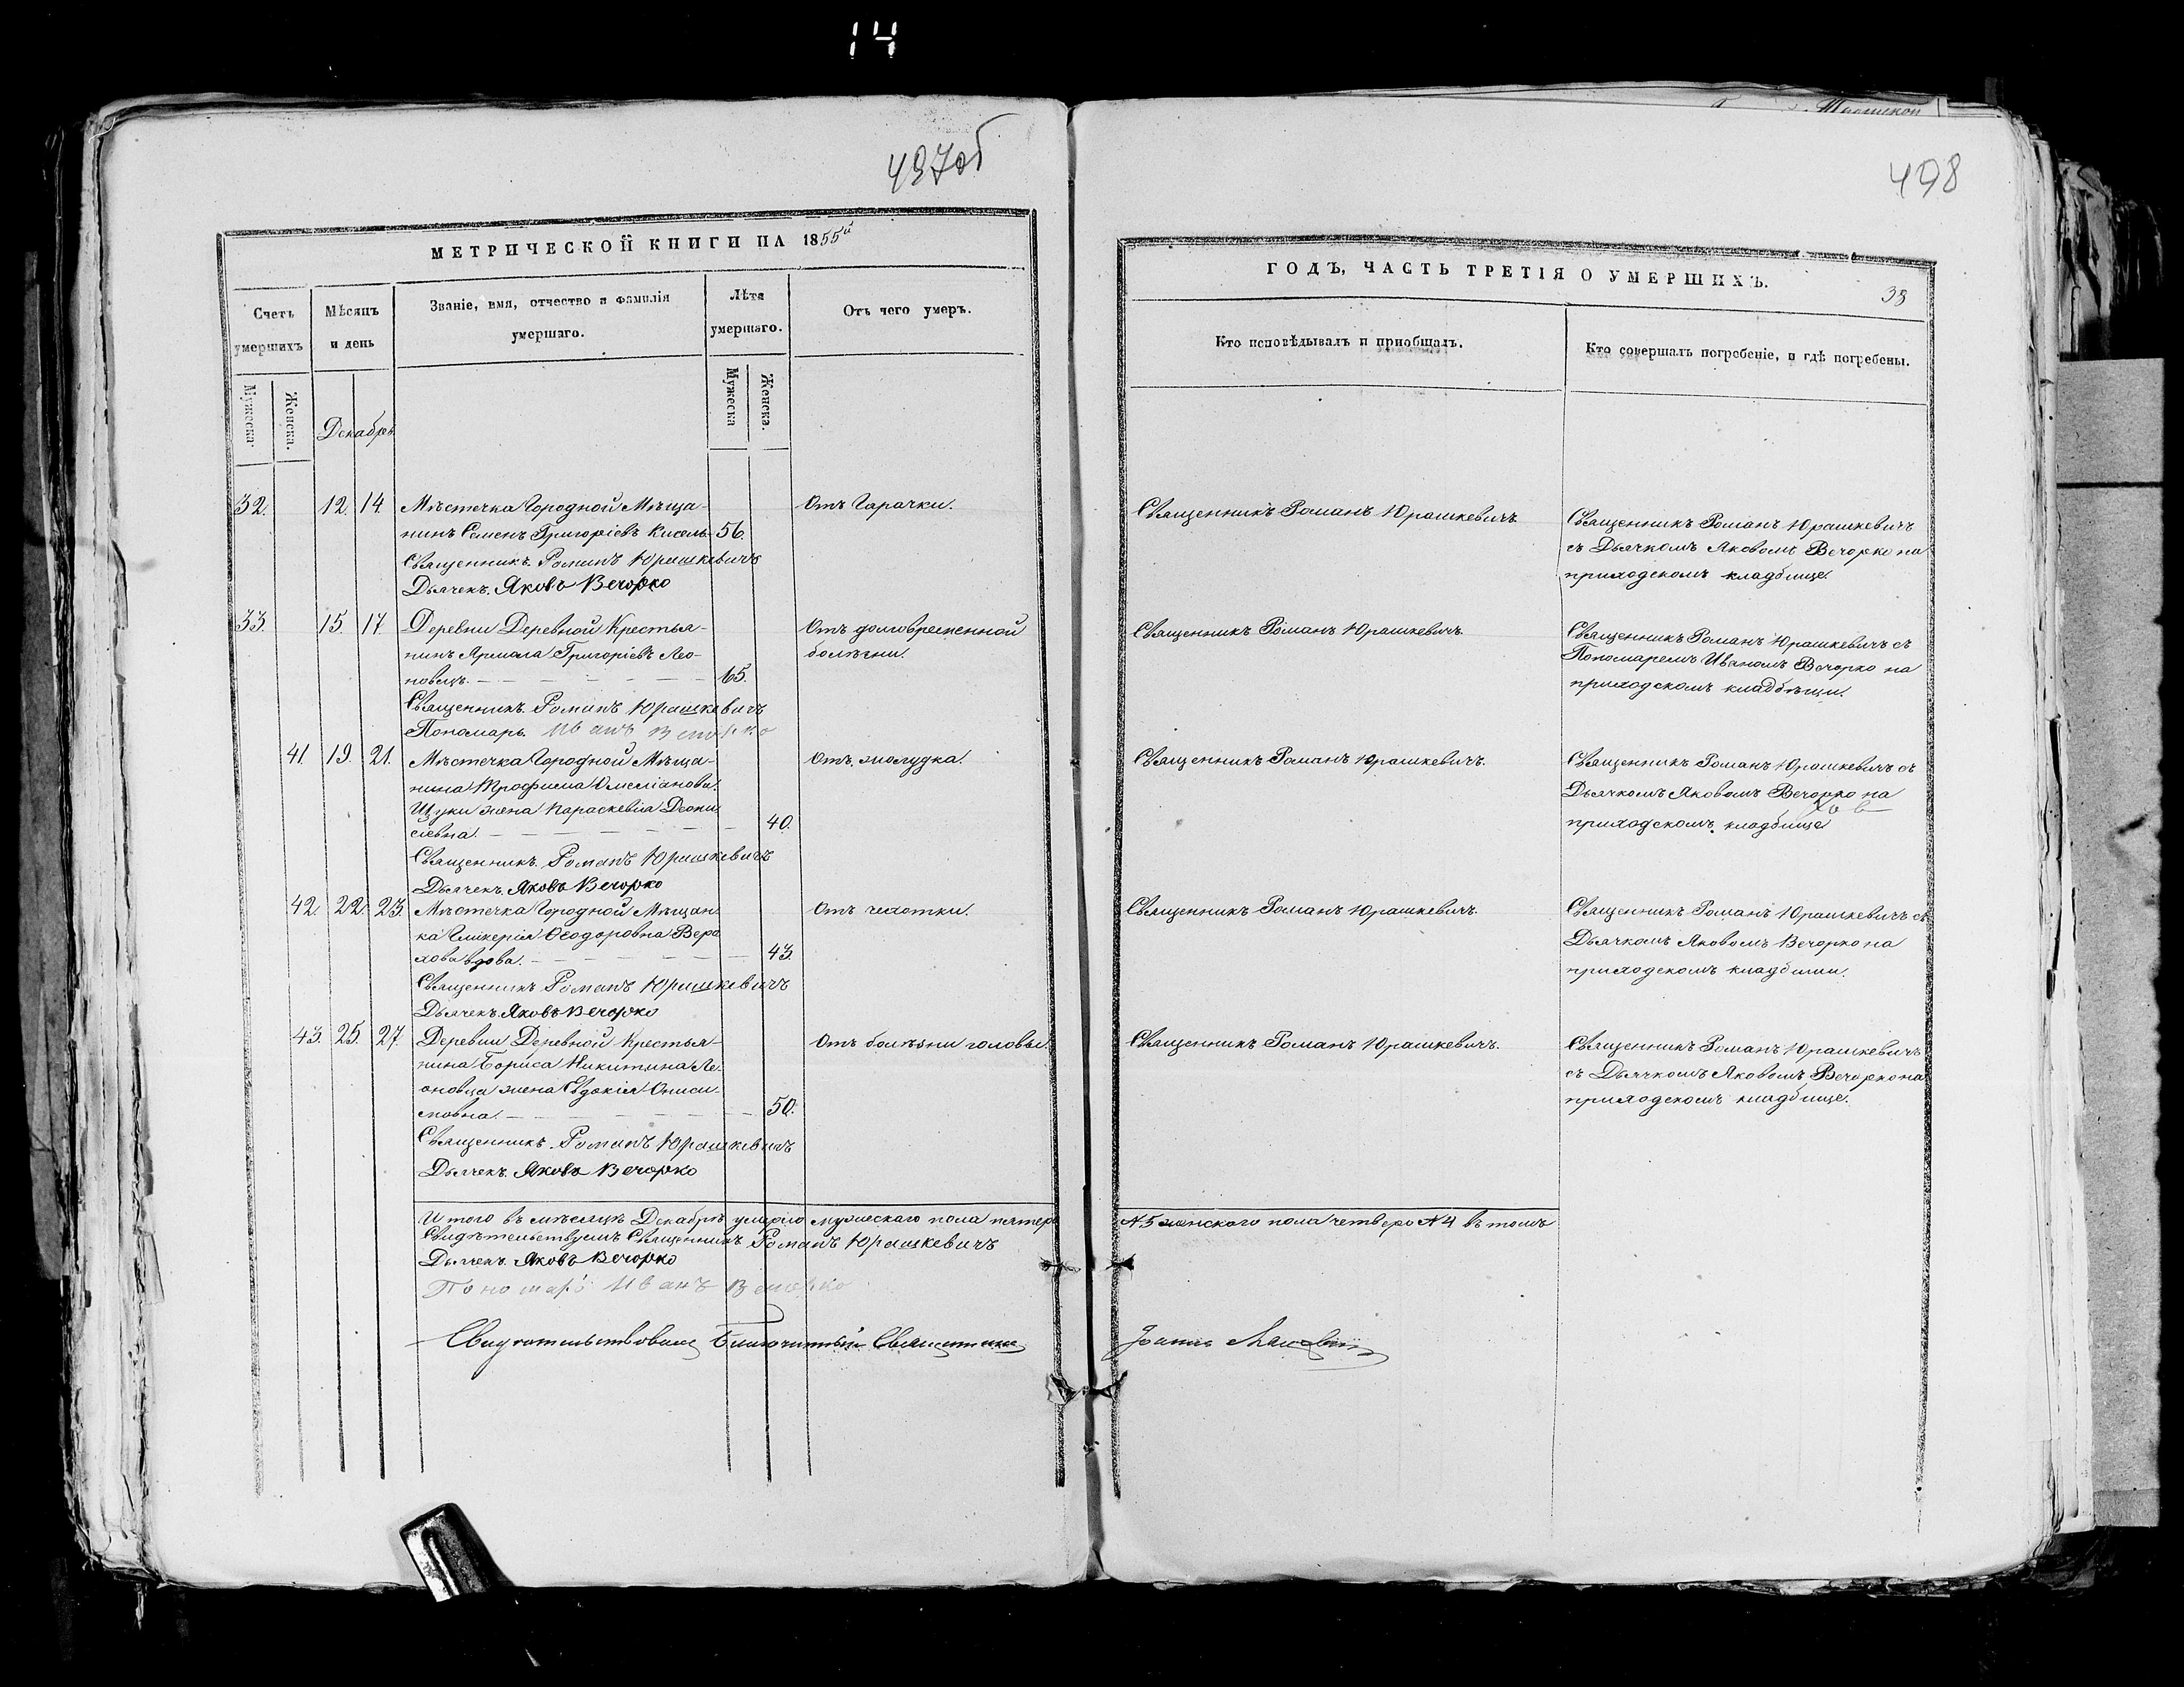 14
497об
МЕТРИЧЕСКОЙ КНИГИ НА 1855й
Счетъ умершихъ
Мѣсяцъ и день
Званіе, имя, отчество и фамилія умершаго.
Лѣта умершаго.
Отъ чего умеръ.
Мужеска.
Женска.
Декабрь
Мужеска
Женска.
32. 12. 14. Мѣстечка Городной Мѣща- Отъ Гарачки.
нинъ Семенъ Григоріевъ Кисель- 56.
Священникъ Романъ Юрашкевичъ
Дьячекъ Яковъ Вечорко
33. 15. 17. Деревни Деревной Крестья- Отъ долговременной
нинъ Ярмола Григоріевъ Лео- болѣзни.
новецъ. 65.
Священникъ Романъ Юрашкевичъ
Пономарь Иванъ Вечорко
41. 19. 21. Мѣстечка Городной Мѣща- Отъ жолудка.
нина Трофима Омеліанова
Щуки жена Параскевіа Діони
сіевна. 40.
Священникъ Романъ Юрашкевичъ
Дьячекъ Яковъ Вечорко
42. 22. 23. Мѣстечка Городной Мѣщан- Отъ чахотки.
ка Гликерія Ѳеодоровна Вера
хова вдова. 43.
Священникъ Романъ Юрашкевичъ
Дьячекъ Яковъ Вечорко
43. 25. 27. Деревни Деревной Крестья- Отъ болѣзни головы.
нина Бориса Никитина Ле-
оновца жена Евдокія Ониси-
мовна. 50.
Священникъ Романъ Юрашкевичъ
Дьячекъ Яковъ Вечорко
И того въ мѣсяцѣ Декабрѣ умерло мужескаго пола пятеро
Свидѣтельствуемъ Священникъ Романъ Юрашкевичъ
Дьячекъ Яковъ Вечорко
Пономарь Иванъ Вечорко
Свидѣтельствовалъ Благочинный Священникъ
498
ГОДЪ, ЧАСТЬ ТРЕТІЯ О УМЕРШИХЪ.
Кто исповѣдывалъ и пріобщалъ.
Кто совершалъ погребеніе, и гдѣ погребены.
Священникъ Романъ Юрашкевичъ
Священникъ Романъ Юрашкевичъ
съ Дьячкомъ Яковомъ Вечорко на
приходскомъ кладбище.
Священникъ Романъ Юрашкевичъ.
Священникъ Романъ Юрашкевичъ съ
Пономаремъ Иваномъ Вечорко на
приходскомъ кладбищи.
Священникъ Романъ Юрашкевичъ.
Священникъ Романъ Юрашкевичъ съ
Дьячкомъ Яковомъ Вечорко на
приходскомъ кладбище
Священникъ Романъ Юрашкевичъ.
Священникъ Романъ Юрашкевичъ съ
Дьячкомъ Яковомъ Вечорко на
приходскомъ кладбищи.
Священникъ Романъ Юрашкевичъ.
Священникъ Романъ Юрашкевичъ
съ Дьячкомъ Яковомъ Вечорко на
приходскомъ кладбище.
№5 женского пола четверо №4 въ томъ
Іоаннъ